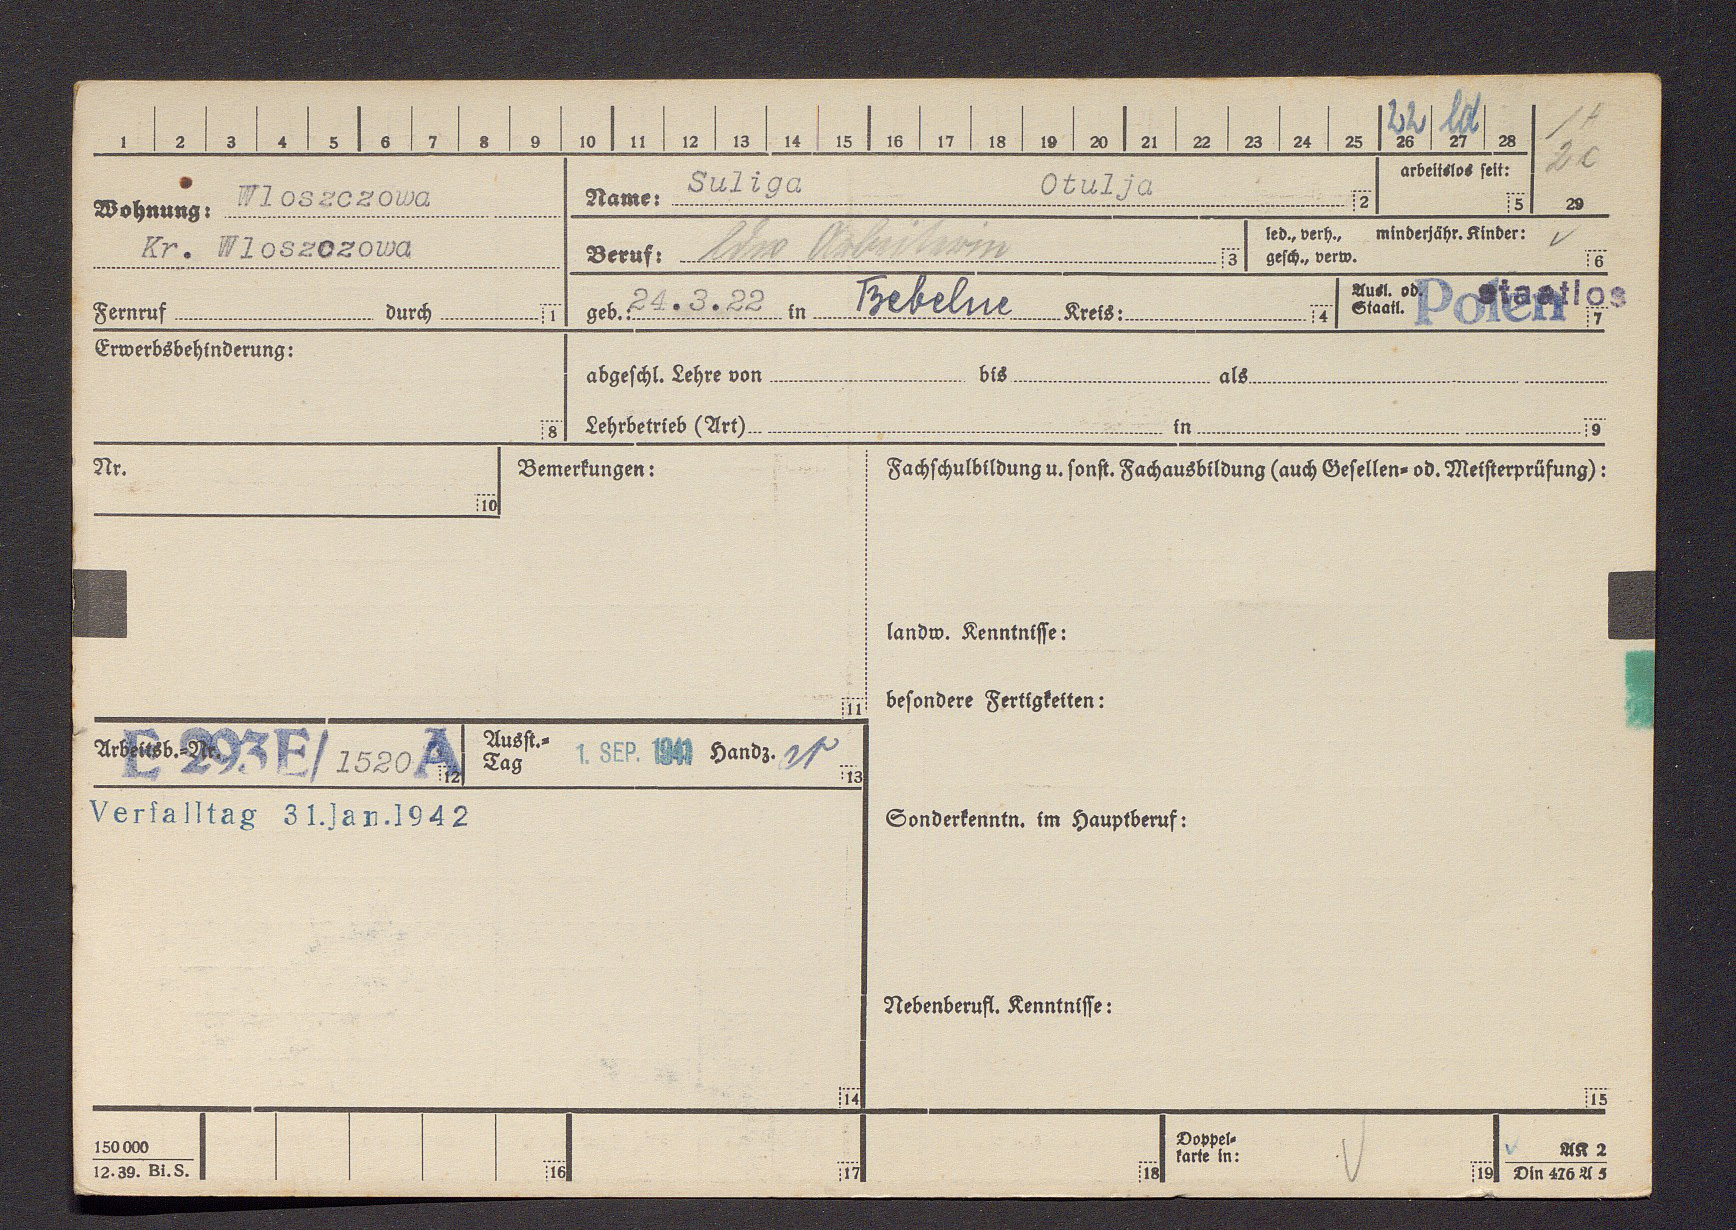 1 2 3 4 5 6 7 8 9 10 11 12 13 14 15 16 17 18 19 20 21 22 23 24 25 26 27 28
22 ld
29
Wohnung: Wloszczowa
Kr. Wloszczowa
Fernruf durch 1
Name: Suliga Otulja 2
arbeitslos seit: 5
Beruf: Ldw Arbeiterin 3
led., verh., minderjähr. Kinder:
gesch., verw. 6
geb.: 24.3.22 in Bebelne Kreis: 4
Ausl. od.
Staatl. Polen staatlos 7
Erwerbsbehinderung:
8
abgeschl. Lehre von bis als
Lehrbetrieb (Art) in 9
Nr.
10
Bemerkungen:
11
Fachschulbildung u. sonst. Fachausbildung (auch Gesellen- od. Meisterprüfung):
landw. Kenntnisse:
besondere Fertigkeiten:
Arbeitsb.-Nr. E 293E/ 1520 A 12
Ausst.-
Tag 1. SEP. 1941 Handz. 13
Verfalltag 31.Jan.1942
14
Sonderkenntn. im Hauptberuf:
Nebenberufl. Kenntnisse:
15
150 000
12·39. Bi. S.
16
17
18
Doppel-
karte in:
19
AK 2
Din 476 A 5